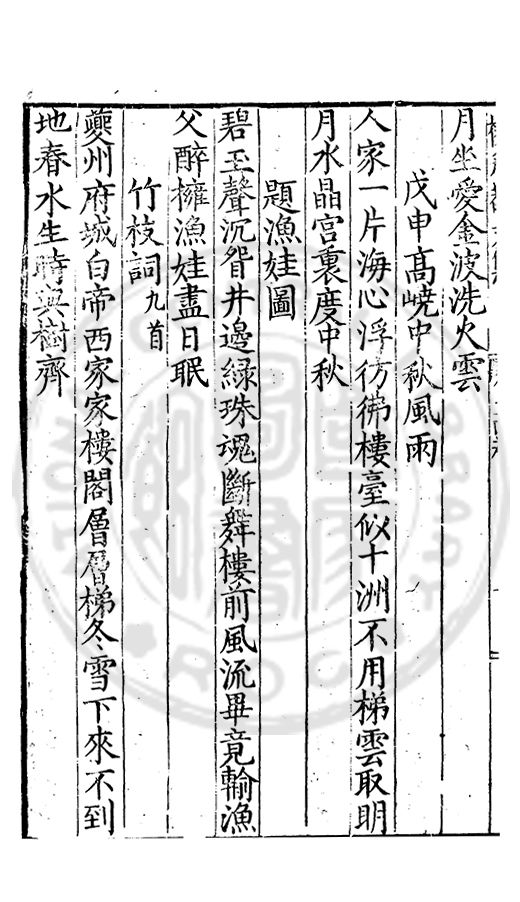 月坐愛金波洗火雲
戊申高嶢中秋風雨
人家一片海心浮彷彿樓臺似十洲不用梯雲取明
月水晶宮裏度中秋
題漁娃圖
碧玉聲沉眢井邊綠珠魂斷舞樓前風流畢竟輸漁
父醉擁漁娃盡日眠
竹枝詞九首
夔州府城白帝西家家樓閣層層梯冬雪下來不到
地春水生時與樹齊